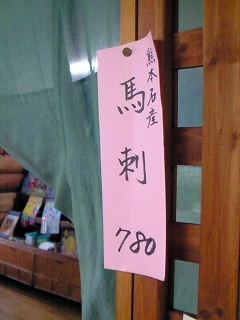 熊本名産
馬刺
780